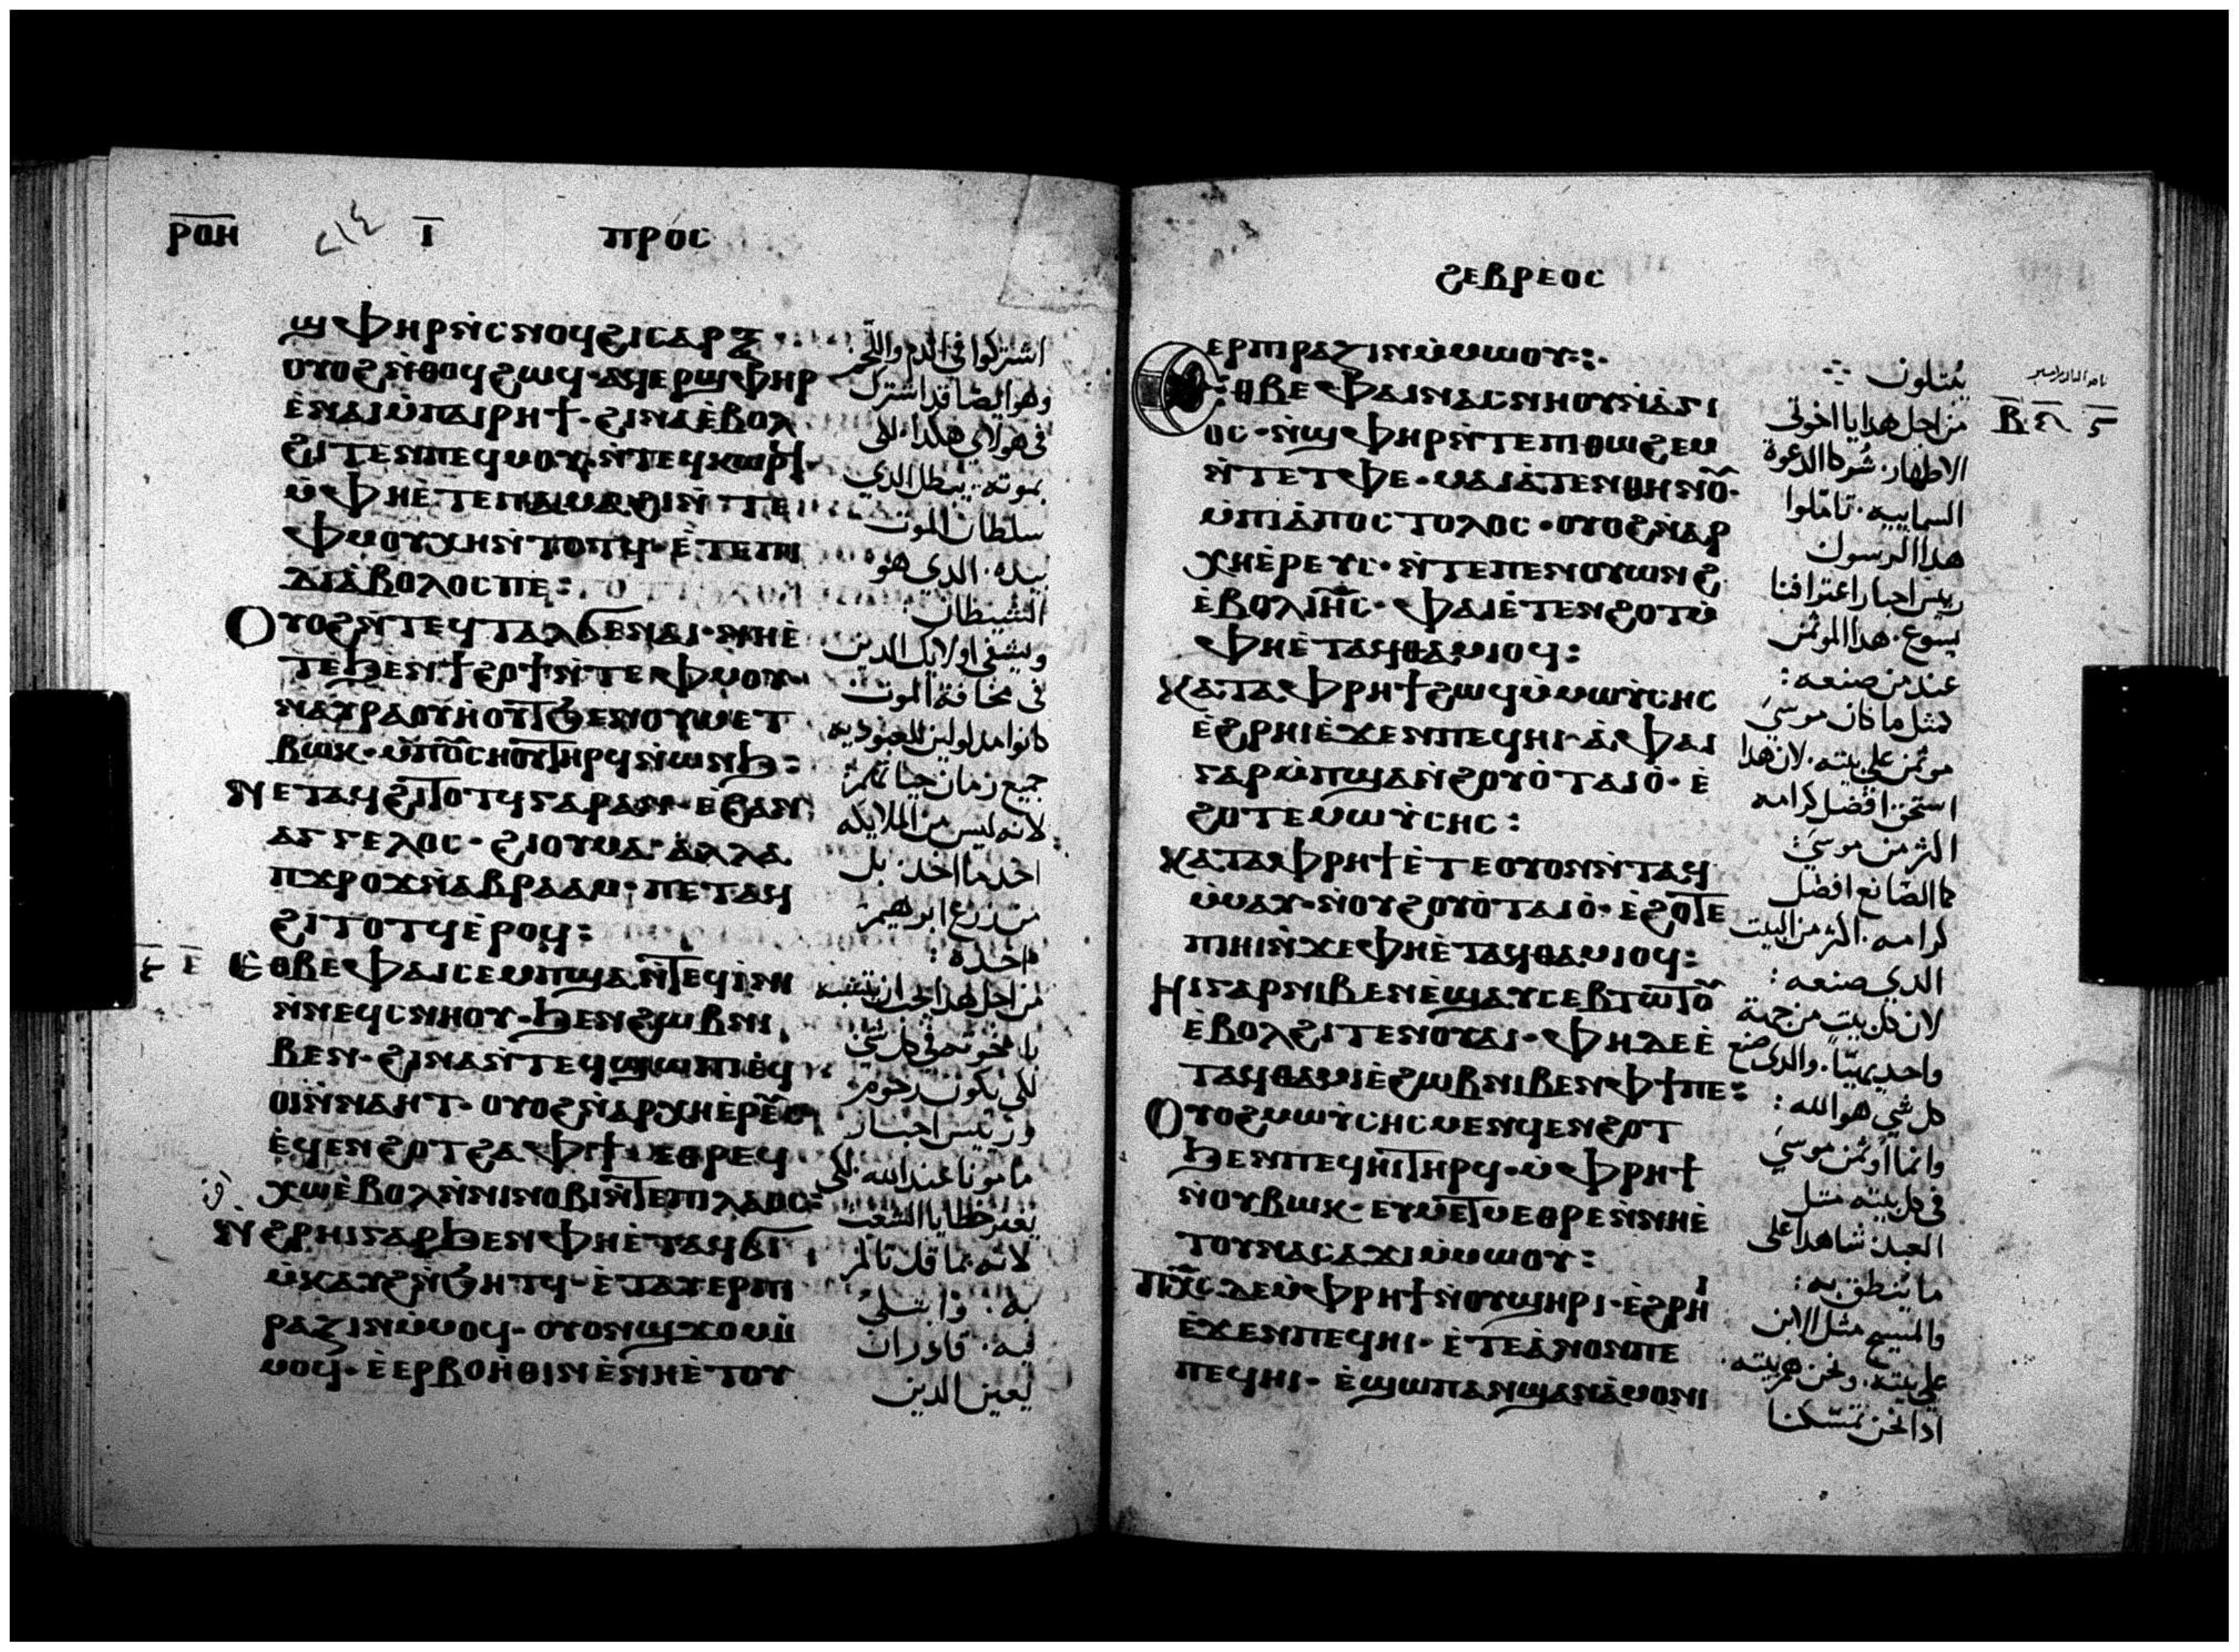 ⲣⲟⲏ ⲓ ⲡⲣⲟⲥ
ϣⲫⲏⲣ ⲛ̀ⲥⲛⲟϥ ϩⲓ ⲥⲁⲣⲝ
ⲟⲩⲟϩ ⲛ̀ⲑⲟϥ ϩⲱϥ · ⲁϥⲉⲣϣⲫⲏⲣ
ⲉ̀ⲛⲁⲓ ⲙ̀ⲡⲁⲓⲣⲏϯ · ϩⲓⲛⲁ ⲉ̀ⲃⲟⲗ
ϩⲓⲧⲉⲛ ⲡⲉϥⲙⲟⲩ · ⲛ̀ⲧⲉϥⲕⲱⲣϥ ·
ⲙ̀ⲫⲏ ⲉ̀ⲧⲉ ⲡⲁⲙⲁϩⲓ ⲛ̀ⲧⲉ
ⲫⲙⲟⲩ ⲭⲏ ⲛ̀ⲧⲟⲧϥ · ⲉ̀ⲧⲉ ⲡⲓ
ⲇⲓⲁ̀ⲃⲟⲗⲟⲥ ⲡⲉ :
ⲟⲩⲟϩ ⲛ̀ⲧⲉϥⲧⲁⲗϭⲉ ⲛⲁⲓ · ⲛⲏ ⲉ̀
ⲧⲉ ϧⲉⲛ ϯϩⲟϯ ⲛ̀ⲧⲉ ⲫⲙⲟⲩ
ⲃⲱⲕ · ⲙ̀ⲡⲟⲩⲥⲏⲟⲩ ⲧⲏⲣϥ ⲛ̀ⲱⲛϧ :
ⲛⲉⲧⲁϥϩⲓⲧⲟⲧϥ ⲅⲁⲣ ⲁⲛ · ⲉ̀ϩⲁⲛ
ⲁⲅⲅⲉⲗⲟⲥ · ϩⲓ ⲟⲩⲙⲁ · ⲁⲗⲗⲁ
ⲡϫⲣⲟϫ ⲛ̀ⲁⲃⲣⲁⲁⲙ · ⲡⲉⲧⲁϥ
ϩⲓⲧⲟⲧϥ ⲉ̀ⲣⲟϥ :
ⲉⲑⲃⲉ ⲫⲁⲓ ⲥⲉⲙⲡϣⲁ ⲛ̀ⲧⲉϥⲓ̀ⲛⲓ
ⲛ̀ⲛⲉϥⲥⲛⲏⲟⲩ · ϧⲉⲛ ϩⲱⲃ ⲛⲓ
ⲃⲉⲛ · ϩⲓⲛⲁ ⲛ̀ⲧⲉϥϣⲱⲡⲓ ⲉ̀ϥ
ⲟⲓ ⲛ̀ⲛⲁⲏⲧ · ⲟⲩⲟϩ ⲛ̀ⲁⲣⲭⲏⲉ̀ⲣⲉⲩⲥ
ⲉ̀ϥⲉⲛϩⲟⲧ ϩⲁ ⲫϯ · ⲉⲑⲣⲉϥ
ⲭⲱ ⲉ̀ⲃⲟⲗ ⲛ̀ⲛⲓⲛⲟⲃⲓ ⲛ̀ⲧⲉ ⲡⲓⲗⲁⲟⲥ :
ⲛ̀ϩⲣⲏⲓ ⲅⲁⲣ ϧⲉⲛ ⲫⲏ ⲉ̀ⲧⲁϥϭⲓ
ⲙ̀ⲕⲁⲩϩ ⲛ̀ϧⲏⲧϥ · ⲉ̀ⲧⲁⲩⲉⲣⲡⲓ
ⲣⲁⲍⲓⲛ ⲙ̀ⲙⲟϥ · ⲟⲩⲟⲛ ϣϫⲟⲙ ⲙ̀
ⲙⲟϥ · ⲉ̀ⲉⲣⲃⲟⲏ̀ⲑⲓⲛ ⲉ̀ⲛⲏ ⲉ̀ⲧⲟⲩ
اشتركوا فى الدم واللحم
وهو ايضًا قد اشترك
فى هولاى هكدا · لكى
بموته · يبطل الدي
سلطان الموت
بيده · الدي هو
الشيطان :
ويشفى اولايك الدين
فى مخافة الموت
جميع زمان حياتهم
لانه ليس من الملايكه
اخد ما اخد · بل
من زرع ابرهيم
اخده :
لكى يكون رحوم
وريس احبار
مامونا عند الله · لكى
يغفر خطايا الشعب
لانه بما قد تالم
به · وابتلى
فيه · قادر ان
يعين الدين
ϩⲉⲃⲣⲉⲟⲥ
ⲉⲣⲡⲓⲣⲁⲍⲓⲛ ⲙ̀ⲙⲱⲟⲩ :·
ⲉⲑⲃⲉ ⲫⲁⲓ ⲛⲁⲥⲛⲏⲟⲩ ⲛ̀ⲁ̀ⲅⲓ
ⲟⲥ · ⲛ̀ϣⲫⲏⲣ ⲛ̀ⲧⲉ ⲡⲓⲑⲱϩⲉⲙ
ⲛ̀ⲧⲉ ⲧⲫⲉ · ⲙⲁⲓⲁ̀ⲧⲉⲛⲑⲏⲛⲟⲩ ·
ⲙ̀ⲡⲓⲁ̀ⲡⲟⲥⲧⲟⲗⲟⲥ · ⲟⲩⲟϩ ⲛ̀ⲁⲣ
ⲭⲏⲉ̀ⲣⲉⲩⲥ · ⲛ̀ⲧⲉ ⲡⲉⲛⲟⲩⲱⲛϩ
ⲉ̀ⲃⲟⲗ ⲓⲏⲥ · ⲫⲁⲓ ⲉ̀ⲧⲉⲛϩⲟⲧ ⲙ̀
ⲫⲏ ⲉ̀ⲧⲁϥⲑⲁⲙⲓⲟϥ :
ⲕⲁⲧⲁ ⲫⲣⲏϯ ϩⲱϥ ⲙ̀ⲙⲱⲩ̀ⲥⲏⲥ
ⲉ̀ϩⲣⲏⲓ ⲉ̀ϫⲉⲛ ⲡⲉϥⲏⲓ · ⲁ̀ ⲫⲁⲓ
ⲅⲁⲣ ⲙ̀ⲡϣⲁ ⲛ̀ϩⲟⲩⲟ̀ ⲧⲁⲓⲟ̀ · ⲉ̀
ϩⲟⲧⲉ ⲙⲱⲩ̀ⲥⲏⲥ :
ⲕⲁⲧⲁ ⲫⲣⲏϯ ⲉ̀ⲧⲉ ⲟⲩⲟⲛⲛ̀ⲧⲁϥ
ⲙ̀ⲙⲁⲩ · ⲛ̀ⲟⲩϩⲟⲩⲟ̀ ⲧⲁⲓⲟ̀ · ⲉ̀ϩⲟⲧⲉ
ⲡⲓⲏⲓ ⲛ̀ϫⲉ ⲫⲏ ⲉ̀ⲧⲁϥⲑⲁⲙⲓⲟϥ :
ⲏⲓ ⲅⲁⲣ ⲛⲓⲃⲉⲛ ⲉ̀ϣⲁⲩⲥⲉⲃⲧⲱⲧⲟⲩ
ⲉ̀ⲃⲟⲗ ϩⲓⲧⲉⲛ ⲟⲩⲁⲓ · ⲫⲏ ⲇⲉ ⲉ̀
ⲧⲁϥⲑⲁⲙⲓⲉ̀ ϩⲱⲃ ⲛⲓⲃⲉⲛ ⲫϯ ⲡⲉ :
ⲟⲩⲟϩ ⲙⲱⲩ̀ⲥⲏⲥ ⲙⲉⲛ ϥⲉⲛϩⲟⲧ
ϧⲉⲛ ⲡⲉϥⲏⲓ ⲧⲏⲣϥ · ⲙ̀ⲫⲣⲏϯ
ⲛ̀ⲟⲩⲃⲱⲕ · ⲉⲩⲙⲉⲧⲙⲉⲑⲣⲉ ⲛ̀ⲛⲏ ⲉ̀
ⲧⲟⲩⲛⲁⲥⲁϫⲓ ⲙ̀ⲙⲱⲟⲩ :
ⲡⲭⲥ ⲇⲉ ⲙ̀ⲫⲣⲏϯ ⲛ̀ⲟⲩϣⲏⲣⲓ · ⲉ̀ϩⲣⲏⲓ
ⲉ̀ϫⲉⲛ ⲡⲉϥⲏⲓ · ⲉ̀ⲧⲉ ⲁ̀ⲛⲟⲛ ⲡⲉ
ⲡⲉϥⲏⲓ · ⲉ̀ϣⲱⲡ ⲁⲛϣⲁⲛⲁ̀ⲙⲟⲛⲓ
يُبتلون
من اجل هدا يا اخوتى
الاطهار · شُركا الدعوة
السماييه · تاملوا
هدا الرسول
ريس احبار اعترافنا
يسوع · هدا الموتمن
عند من صنعه :
كمثل ما كان موسي
موتمن على بيته · لان هدا
استحق افضل كرامه
اكثر من موسي :
كالصانع افضل
كرامه · اكثر من البيت
الدي صنعه :
لان كل بيت من جهة
واحد يهيّا · والدى صنع
كل شي هو الله :
وانما اوتمن موسي
فى كل بيته مثل
العبد شاهدا على
ما ينطق به :
والمسيح مثل الابن
على بيته · ونحن هم بيته ·
ادا نحن تمسّكنا